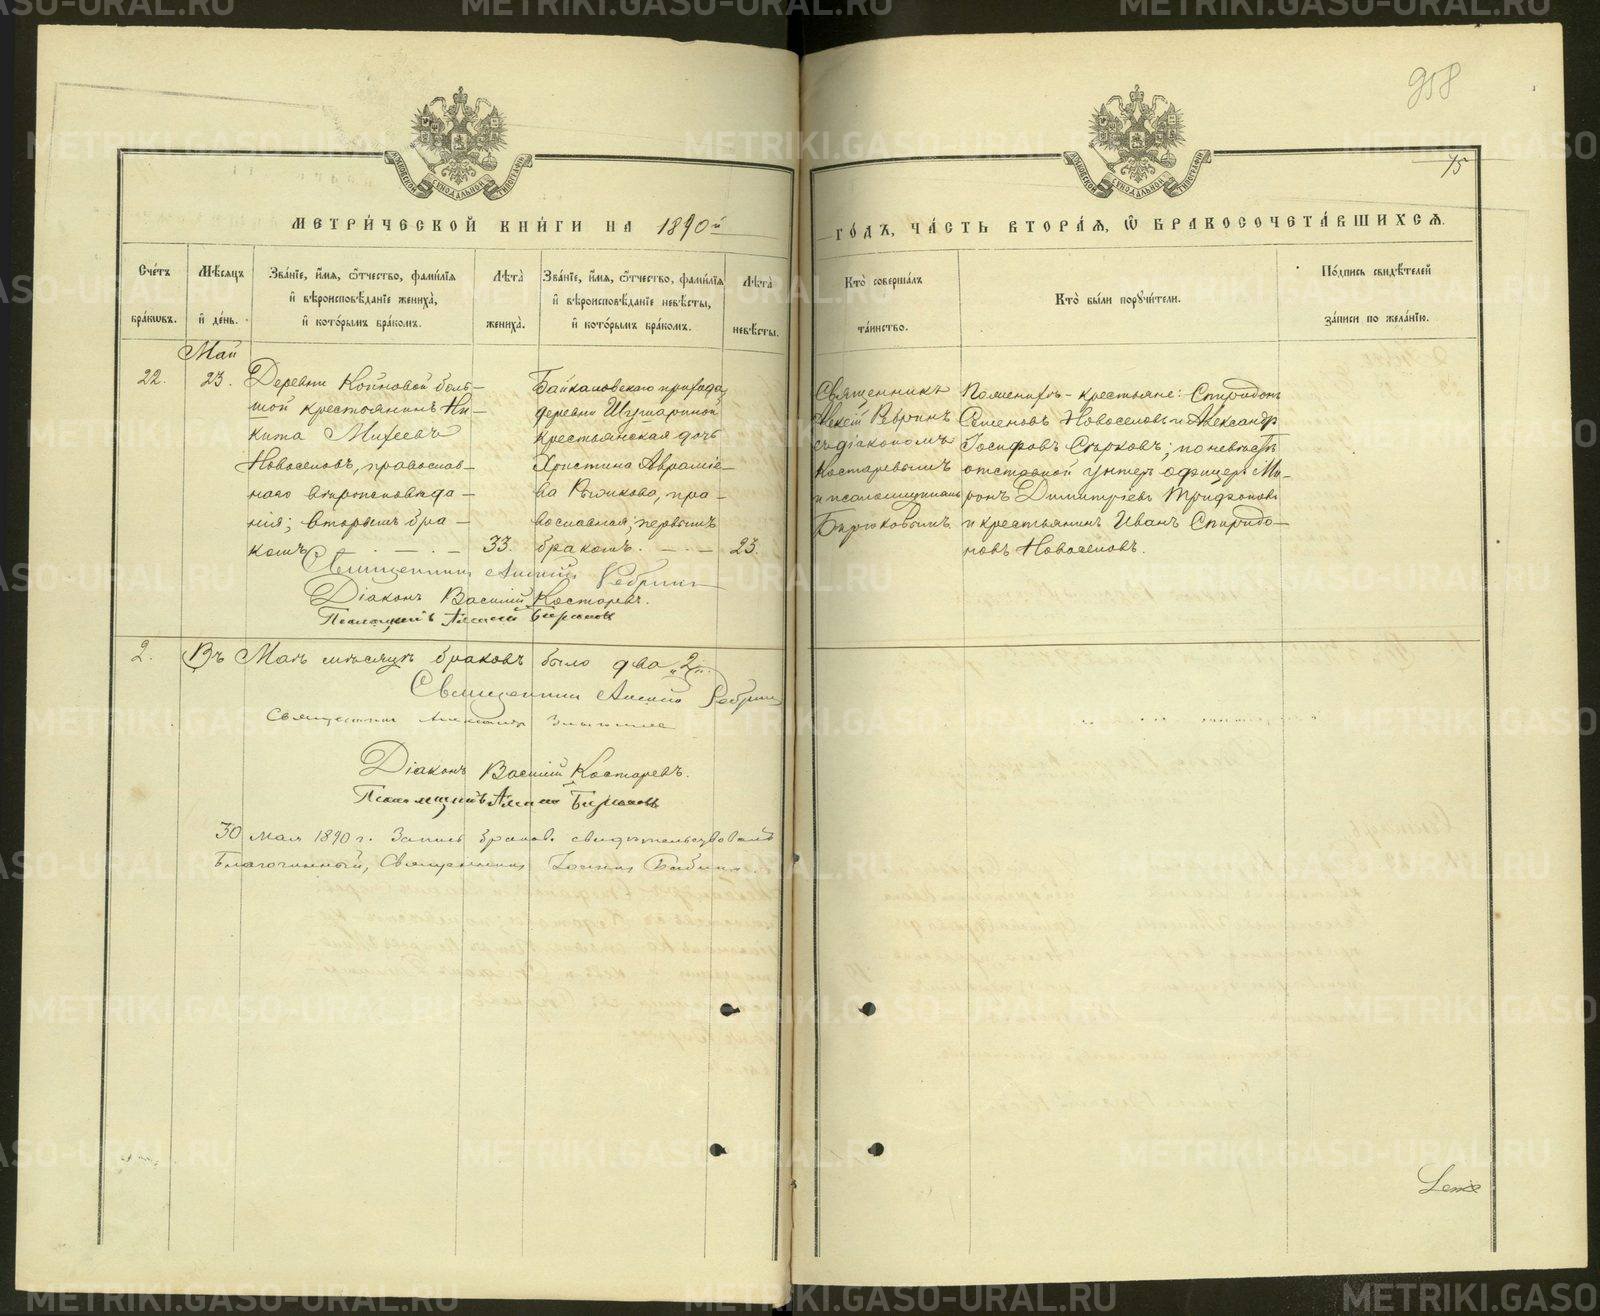 958
75
МЕТРИЧЕСКОЙ КНИГИ НА 1890й
ГОДЪ, ЧАСТЬ ВТОРАЯ, Ѡ БРАКОСОЧЕТАВШИХСЯ.
Счетъ браковъ.
Мѣсяцъ и день.
Званіе, имя, ѿчество, фамилія и вѣроисповѣданіе жениха, и которымъ бракомъ.
Лѣта жениха.
Званіе, имя, ѿчество, фамилія и вѣроисповѣданіе невѣсты, и которымъ бракомъ.
Лѣта невѣсты.
Кто совершалъ таинство.
Кто были поручители.
Подпись свидѣтелей записи по желанію.
Май
22. 23.
Деревни Койновой боль-
шой крестьянинъ Ни-
кита Михеевъ
Новоселовъ, православ-
наго вѣроисповѣда-
нія; вторымъ бра-
комъ 33.
Байкаловскаго прихода,
деревни Шушариной
крестьянская дочь
Христина Авраміе-
ва Рыжкова, пра-
вославная; первымъ
бракомъ. 23.
Священникъ
Алексій Ребринъ
съ діакономъ
Костаревымъ
и псаломщикомъ
Бирюковымъ
По женихѣ - крестьяне: Спиридонъ
Семеновъ Новоселовъ и Александръ
Іосифовъ Сѣрковъ; по невѣстѣ
отставной унтеръ офицеръ Ми-
ронъ Димитріевъ Трифоновъ
и крестьянинъ Иванъ Спиридо-
новъ Новоселовъ.
Священникъ Алексій Ребринъ
Діаконъ Василій Костаревъ.
Псаломщикъ Алексій Бирюковъ
2. Въ Маѣ мѣсяцѣ браковъ было два „2".
Священникъ Алексій Ребринъ
Священникъ Александръ
Діаконъ Василій Костаревъ.
Псаломщикъ Алексій Бирюковъ
30 мая 1890 г. Запись браковъ свидѣтельствовалъ
Благочинный, Священникъ Іоаннъ Бабинъ.
METRIKI.GASO-URAL.RU